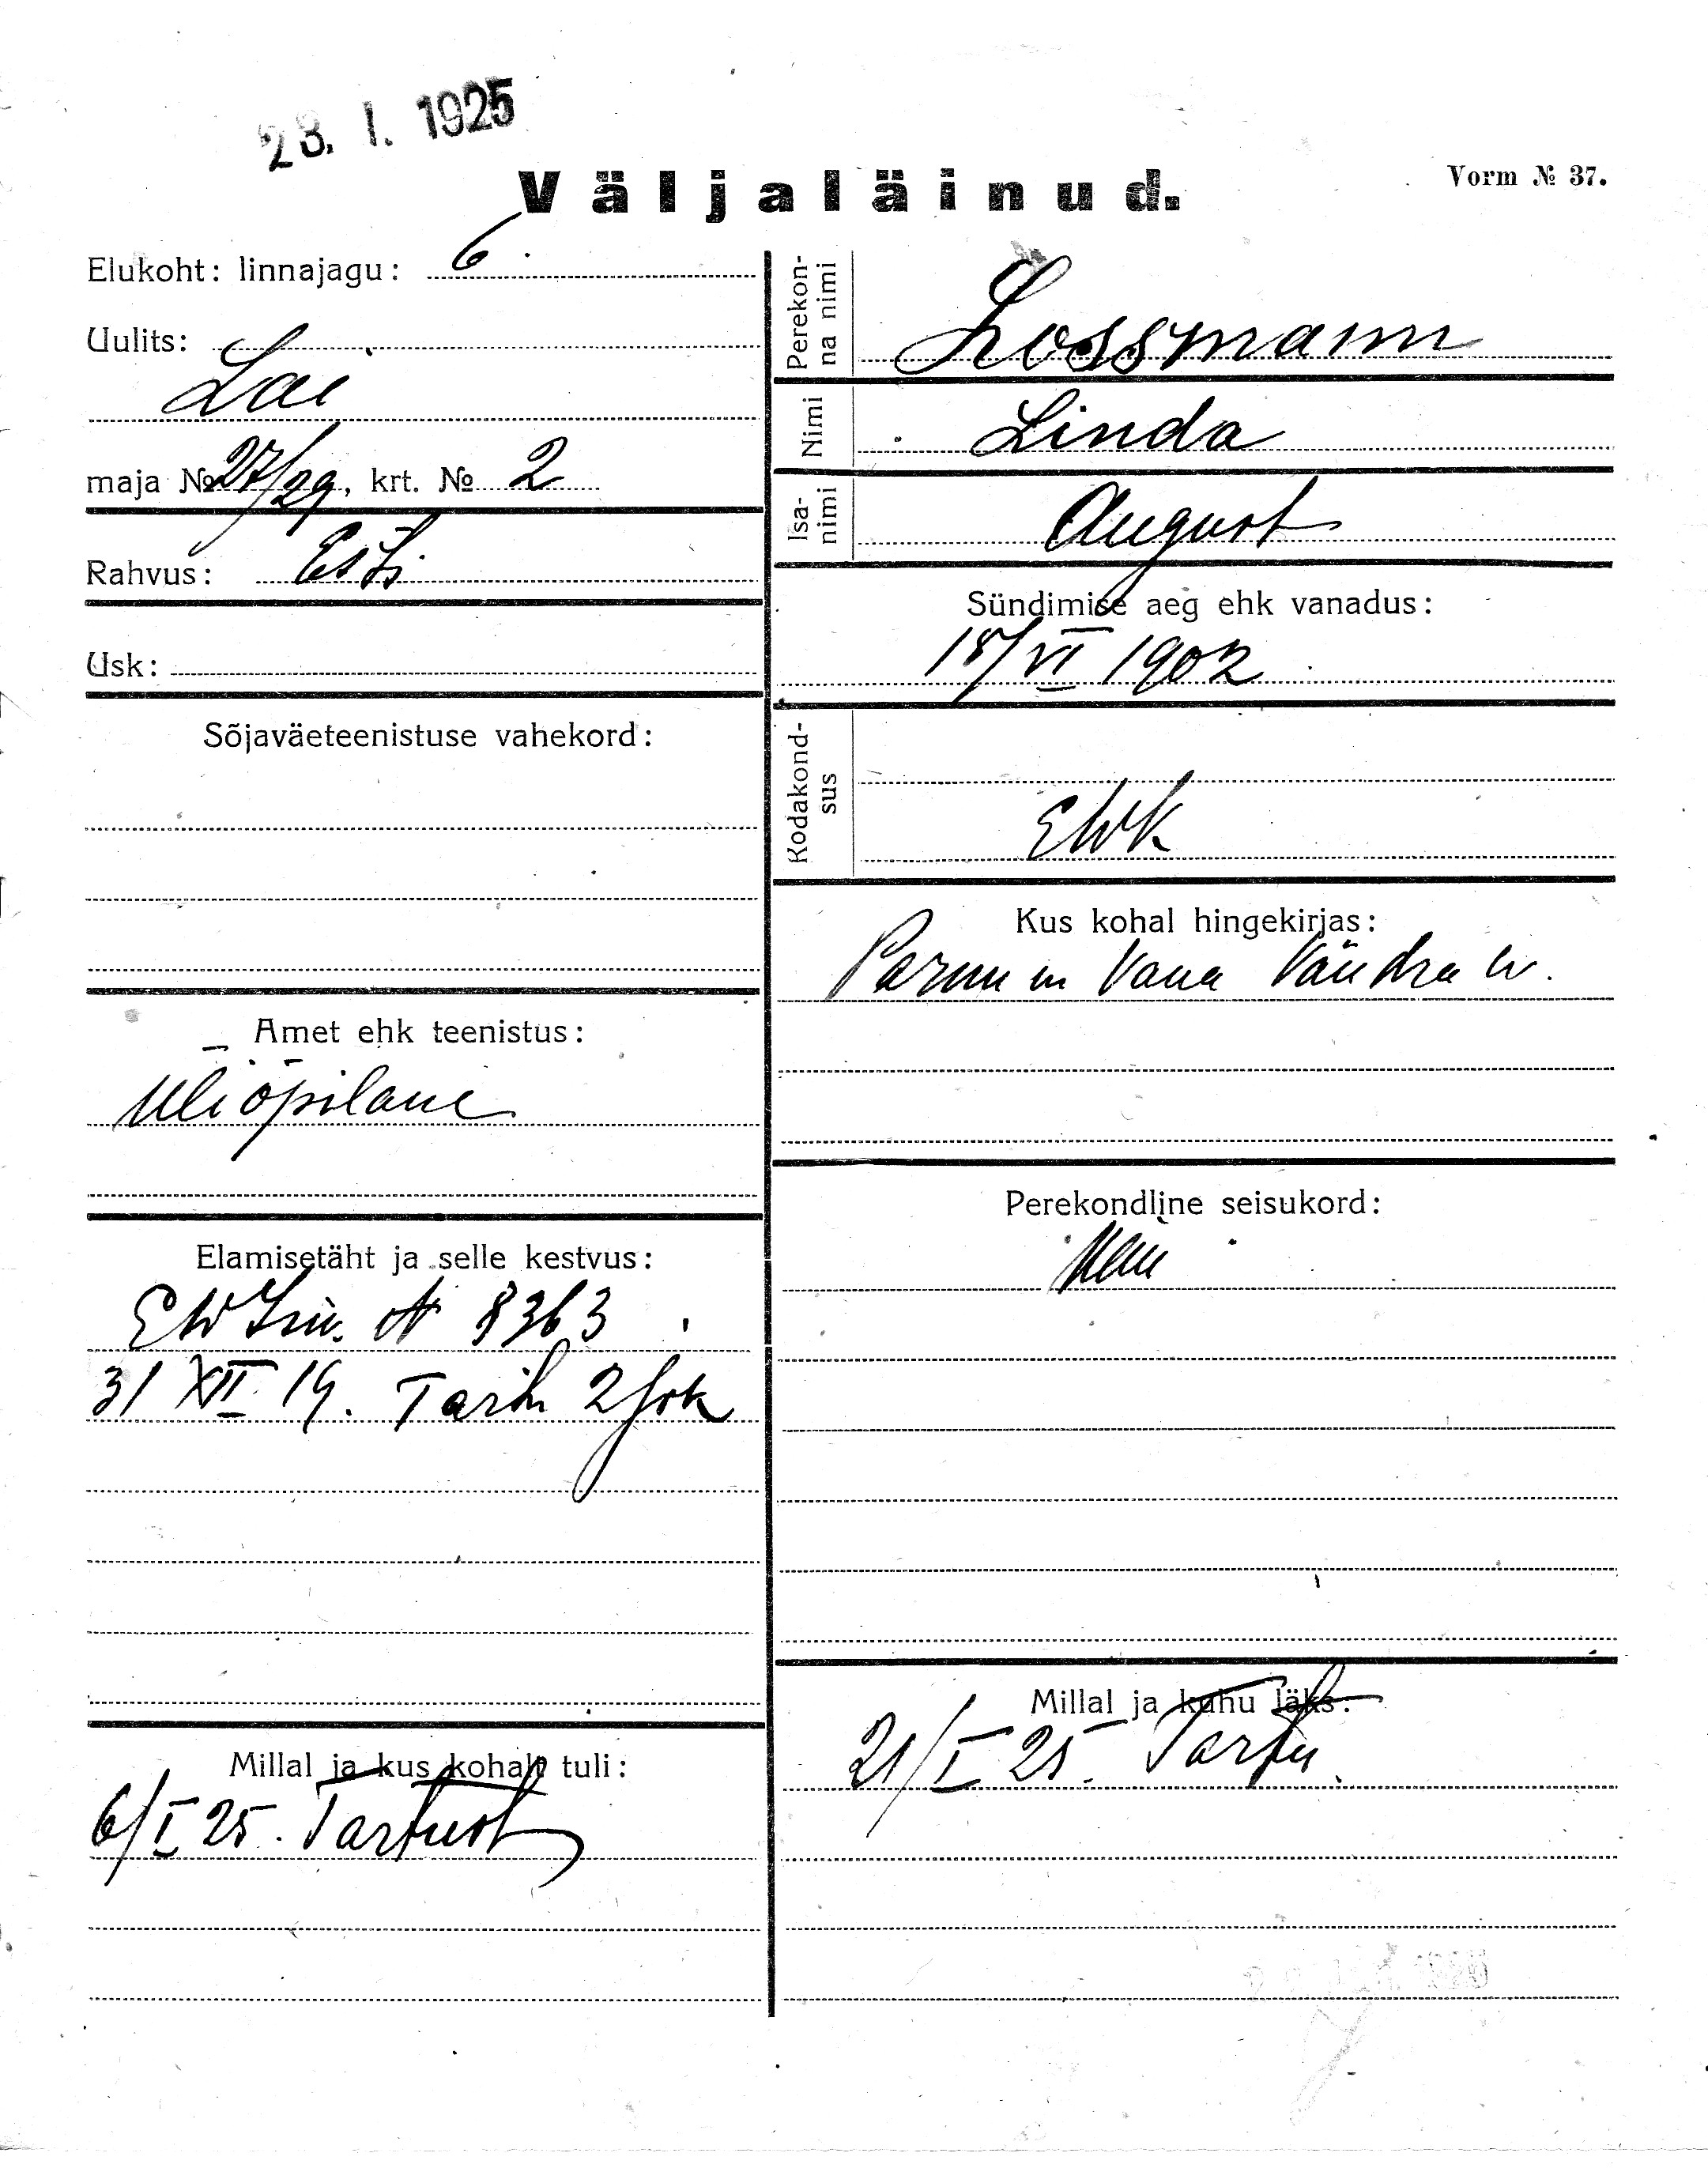 28. I. 1925
Väljaläinud.
Vorm № 37.
Elukoht: linnajagu: 6.
Uulits:
Lai
maja № 27/29, krt. № 2
Rahvus: Esti
Usk:
Sõjaväeteenistuse vahekord:
Amet ehk teenistus:
Üliõpilane
Elamisetäht ja selle kestvus:
EW Isii. № 8363
31 XII 19. Tartu 2 jsk
Millal ja kus kohalt tuli:
6/I 25. Tartust
Perekonna nimi
Lossmann
Nimi
Linda
Isanimi
August
Sündimise aeg ehk vanadus:
18/VI 1902
Kodakondsus
EWK
Kus kohal hingekirjas:
Pärnu m Vana Vändra w.
Perekondline seisukord:
Millal ja kuhu läks:
21/I 25. Tartu.